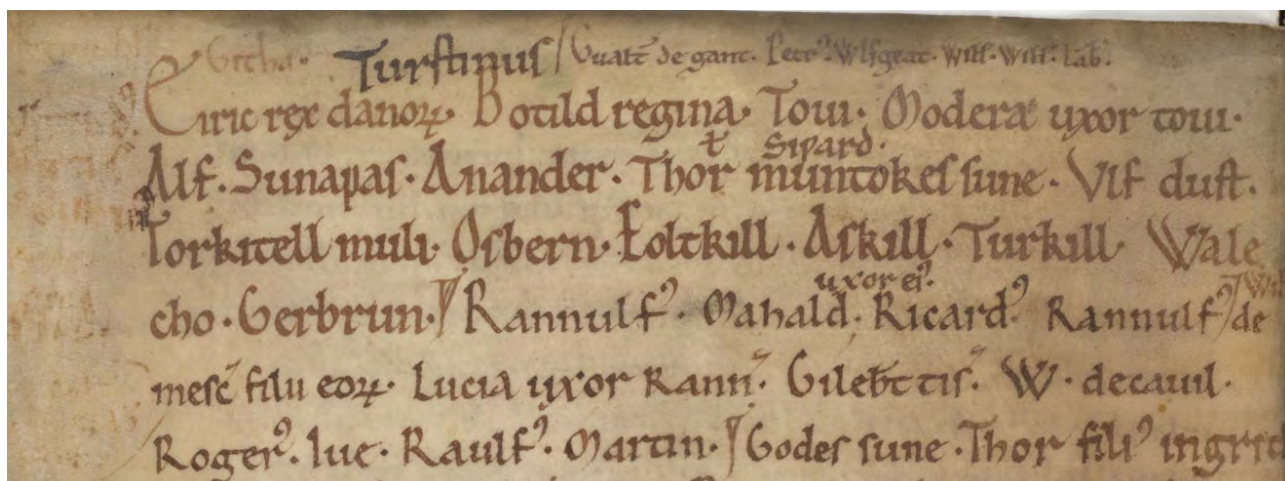 Githa. Turstinus / Gualt̄ de gant. Petrꝰ. Wlfgeat. Will. Will. Lab̄.
Eiric rex danoꝝ. Botild regina. Toui. Moderæ uxor toui.
Alf. Sunapas. Anander. Thor ł Siuard. muntokes sune. Vlf dust.
Torkitell muli. Osbern. Eoltkill. Askill. Turkill. Wale
cho. Gerbrun. Rannulfꝰ. Mahald. uxor eiꝰ. Ricardꝰ Rannulfꝰ de
mesc̄ filii eoꝝ. Lucia uxor Rann̄. Gileb̄t tis̄. W. decauil.
Rogerꝰ. lue. Raulfꝰ. Martin. Godes sune. Thor filiꝰ ingrid